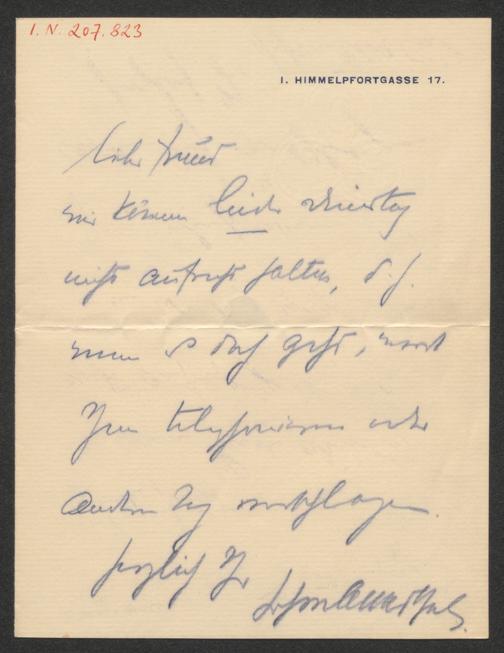 I. N. 207.823
I. HIMMELPFORTGASSE 17.
Lieber Freund
wir können leider Dienstag
nicht aufrecht halten, d. h.
wenn es doch geht, werde
Ihnen telephonieren oder
andern Tag vorschlagen.
herzlich Ihr